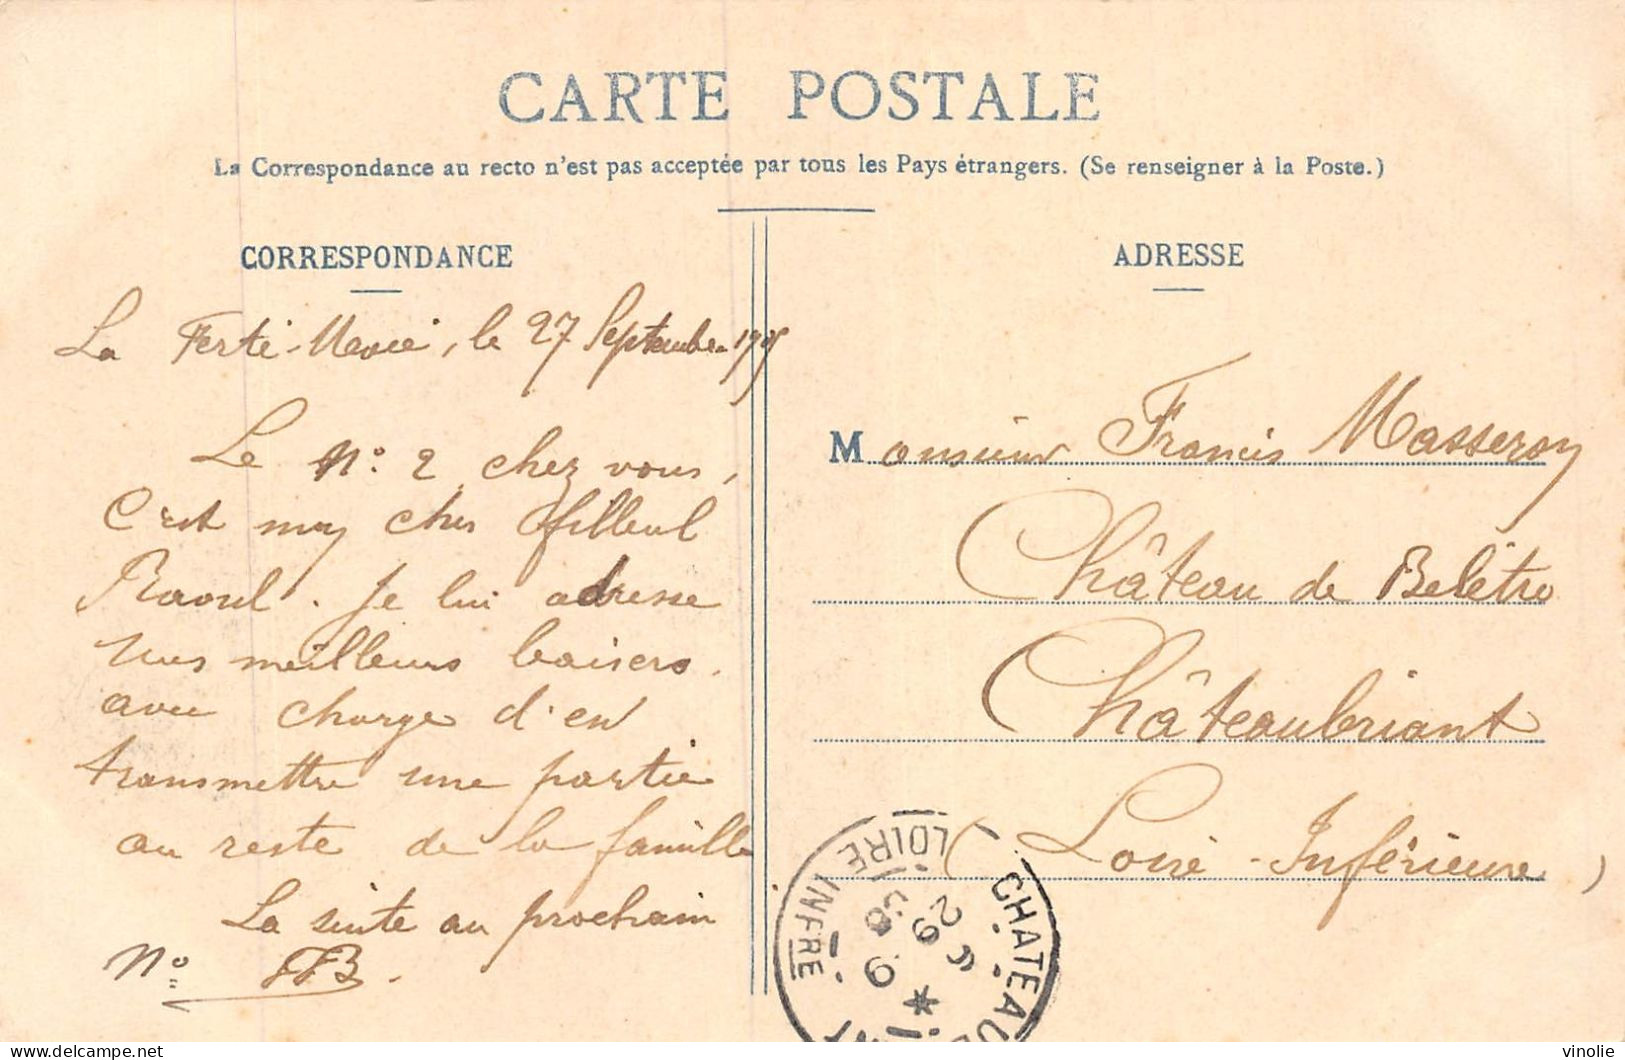 CARTE POSTALE
La Correspondance au recto n'est pas acceptée par tous les Pays étrangers. (Se renseigner à la Poste.)
CORRESPONDANCE
La Ferté-Macé, le 27 Septembre 1905
Le No. 2 chez vous,
C'est mon cher filleul
Raoul. Je lui adresse
mes meilleurs baisers.
avec charge d'en
transmettre une partie
au reste de la famille
La suite au prochain
No
ADRESSE
Monsieur Francis Masseron
Château de Belêtre
Châteaubriant
(Loire-Inférieure)
CHATEAUB
LOIRE INFRE
29 9
05
vinolie